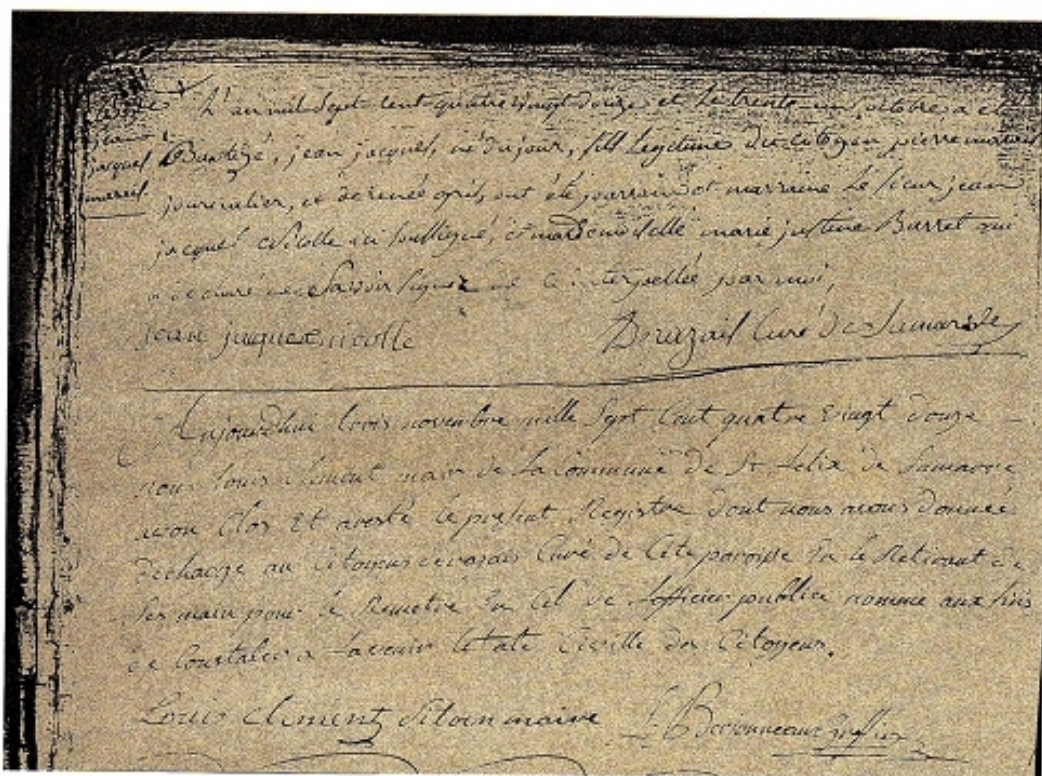 jean
jacques
mareil
L'an mil sept cent quatre vingt douze et le trente-un octobre a eté
Baptizé, jean jacques, né du jour, fils legitime du citoyen pierre
journalier, et de renée ont été parrain et marraine Le sieur jean
jacques Nicolle ici soussigné, et mademoiselle marie justine Barret qui
a declaré ne Savoir signer de ce interpellée par moi,
jean jacques nicolle
Curé de
Aujourdhui trois novembre mille Sept Cent quatre vingt douze
nous louis Clement maire de La Commune de St felix de
avon Clos Et aresté le present Registre dont nous avons donnée
decharge au Citoyen Curé de Cete paroisse En le Retirant de
Ses main pour le Remetre En Cel de Lofficier publice nomme aux fins
de Constater a Lavenir Letate Civille des Citoyens.
Louis Clement maire